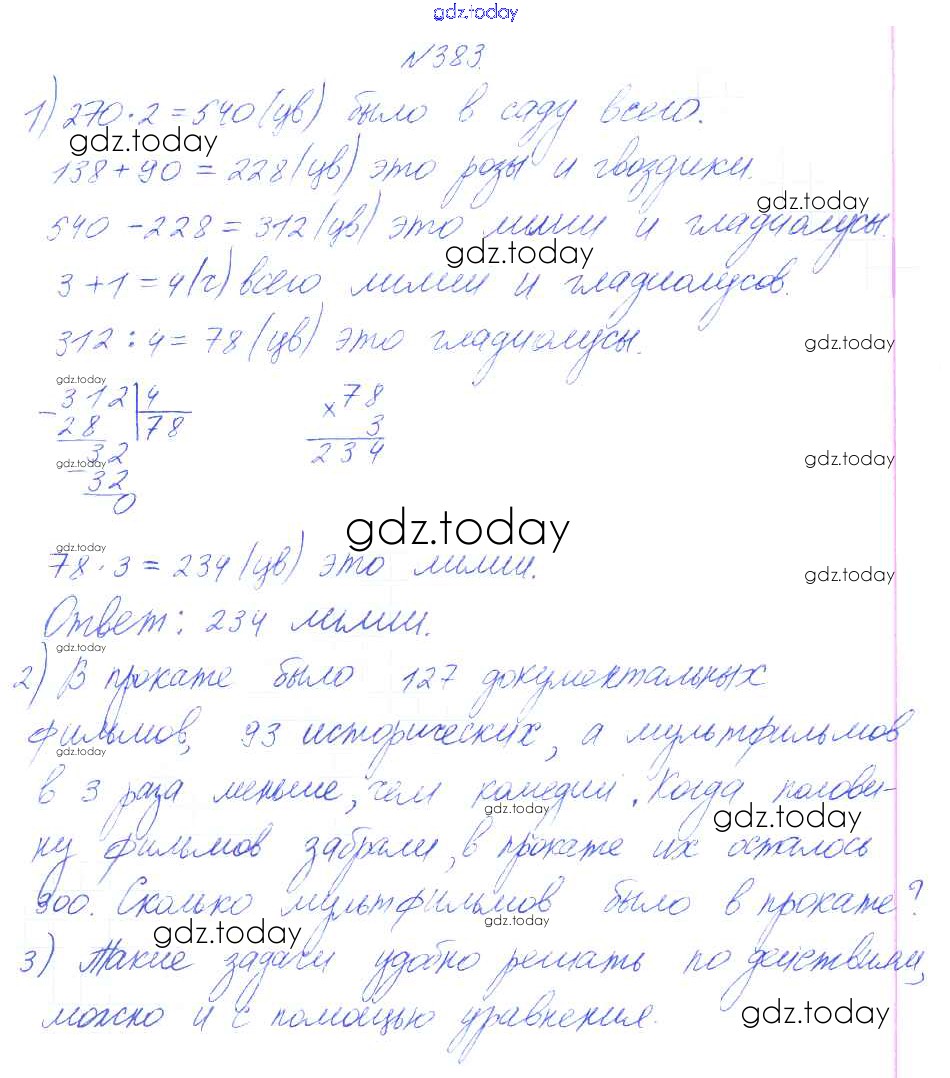 gdz.today
№383.
1) 270·2=540(цв) было в саду всего.
gdz.today
138+90=228(цв) это розы и гвоздики.
gdz.today
540-228=312(цв) это лилии и гладиолусы.
gdz.today
3+1=4(ч) всего лилии и гладиолусов.
312:4=78(цв) это гладиолусы.
gdz.today
gdz.today
312 4
- 28 78
32
gdz.today
- 32
0
78
× 3
234
gdz.today
gdz.today
gdz.today
78·3=234(цв) это лилии.
gdz.today
Ответ: 234 лилии.
gdz.today
2) В прокате было 127 документальных
фильмов, 93 исторических, а мультфильмов
gdz.today
в 3 раза меньше, чем комедий. Когда полови-
gdz.today
gdz.today
ну фильмов забрали, в прокате их осталось
300. Сколько мультфильмов было в прокате?
gdz.today
gdz.today
3) Такие задачи удобно решать по действиям,
можно и с помощью уравнения.
gdz.today